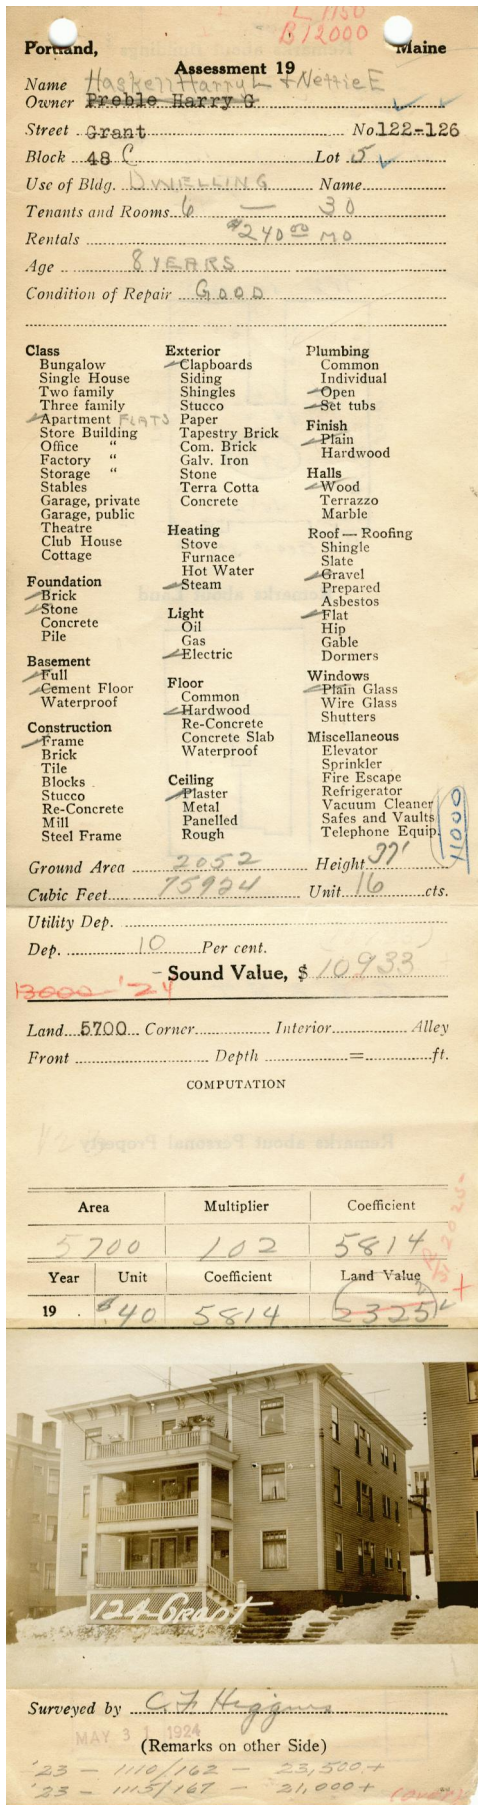 L 1150
B 12000
Portland, Maine
Assessment 19
Name Haskell Harry L & Nettie E
Owner Preble Harry G
Street Grant No. 122-126
Block 48 C Lot 5
Use of Bldg. DWELLING Name
Tenants and Rooms 6 — 30
Rentals $240.00 MO
Age 8 YEARS
Condition of Repair GOOD
Class
Bungalow
Single House
Two family
Three family
Apartment FLATS
Store Building
Office "
Factory "
Storage "
Stables
Garage, private
Garage, public
Theatre
Club House
Cottage
Foundation
Brick
Stone
Concrete
Pile
Basement
Full
Cement Floor
Waterproof
Construction
Frame
Brick
Tile
Blocks
Stucco
Re-Concrete
Mill
Steel Frame
Exterior
Clapboards
Siding
Shingles
Stucco
Paper
Tapestry Brick
Com. Brick
Galv. Iron
Stone
Terra Cotta
Concrete
Heating
Stove
Furnace
Hot Water
Steam
Light
Oil
Gas
Electric
Floor
Common
Hardwood
Re-Concrete
Concrete Slab
Waterproof
Ceiling
Plaster
Metal
Panelled
Rough
Plumbing
Common
Individual
Open
Set tubs
Finish
Plain
Hardwood
Halls
Wood
Terrazzo
Marble
Roof — Roofing
Shingle
Slate
Gravel
Prepared
Asbestos
Flat
Hip
Gable
Dormers
Windows
Plain Glass
Wire Glass
Shutters
Miscellaneous
Elevator
Sprinkler
Fire Escape
Refrigerator
Vacuum Cleaner
Safes and Vaults
Telephone Equip.
11000
Ground Area 2052 Height 37'
Cubic Feet 75924 Unit 16 cts.
Utility Dep.
Dep. 10 Per cent.
Sound Value, $ 10933
13000 - '24
Land 5700 Corner Interior Alley
Front Depth = ft.
COMPUTATION
Area Multiplier Coefficient
5700 102 5814
Year Unit Coefficient Land Value
19 $.40 5814 2325
124-Grant
Surveyed by C. F. Higgins
MAY 31 1924
(Remarks on other Side)
'23 - 1110/162 - 23,500+
'23 - 1115/167 - 21,000+
(over)